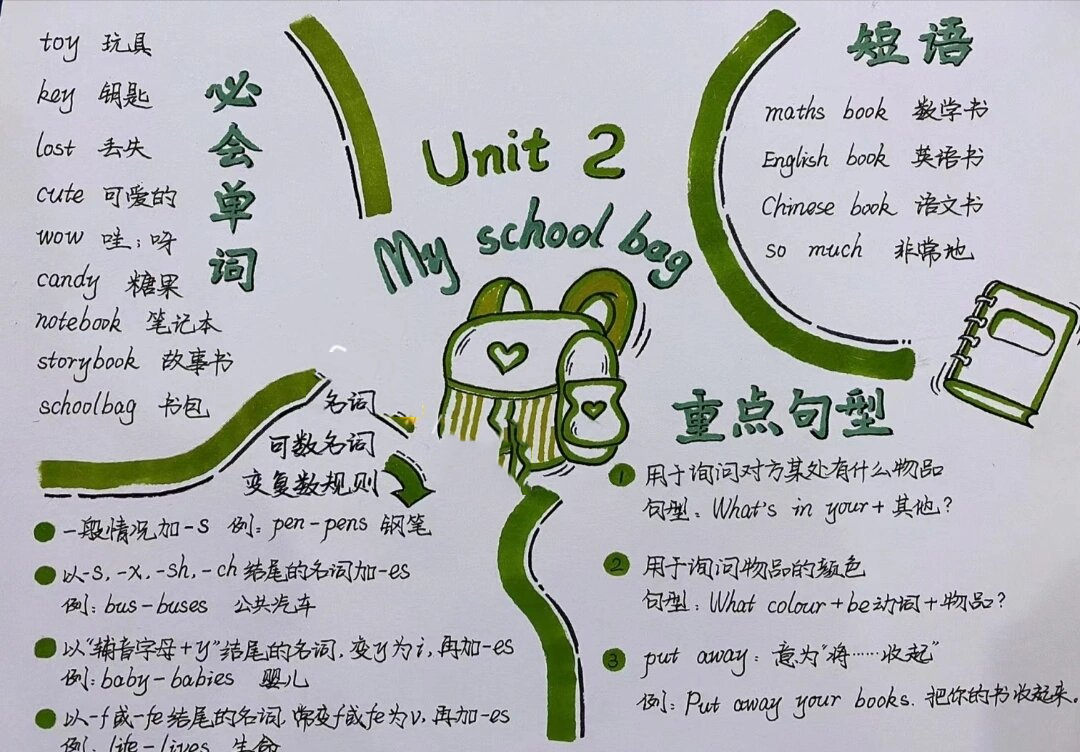 Unit 2
My school bag
必会单词
toy 玩具
key 钥匙
lost 丢失
cute 可爱的
wow 哇；呀
candy 糖果
notebook 笔记本
storybook 故事书
schoolbag 书包
短语
maths book 数学书
English book 英语书
Chinese book 语文书
so much 非常地
名词
可数名词
变复数规则
一般情况加-s 例：pen-pens 钢笔
以-s,-x,-sh,-ch结尾的名词加-es
例：bus-buses 公共汽车
以“辅音字母+y”结尾的名词,变y为i,再加-es
例：baby-babies 婴儿
以-f或-fe结尾的名词,常变f或fe为v,再加-es
例：life-lives 生命
重点句型
1 用于询问对方某处有什么物品
句型：What's in your+其他?
2 用于询问物品的颜色
句型：What colour+be动词+物品?
3 put away：意为“将……收起”
例：Put away your books. 把你的书收起来。